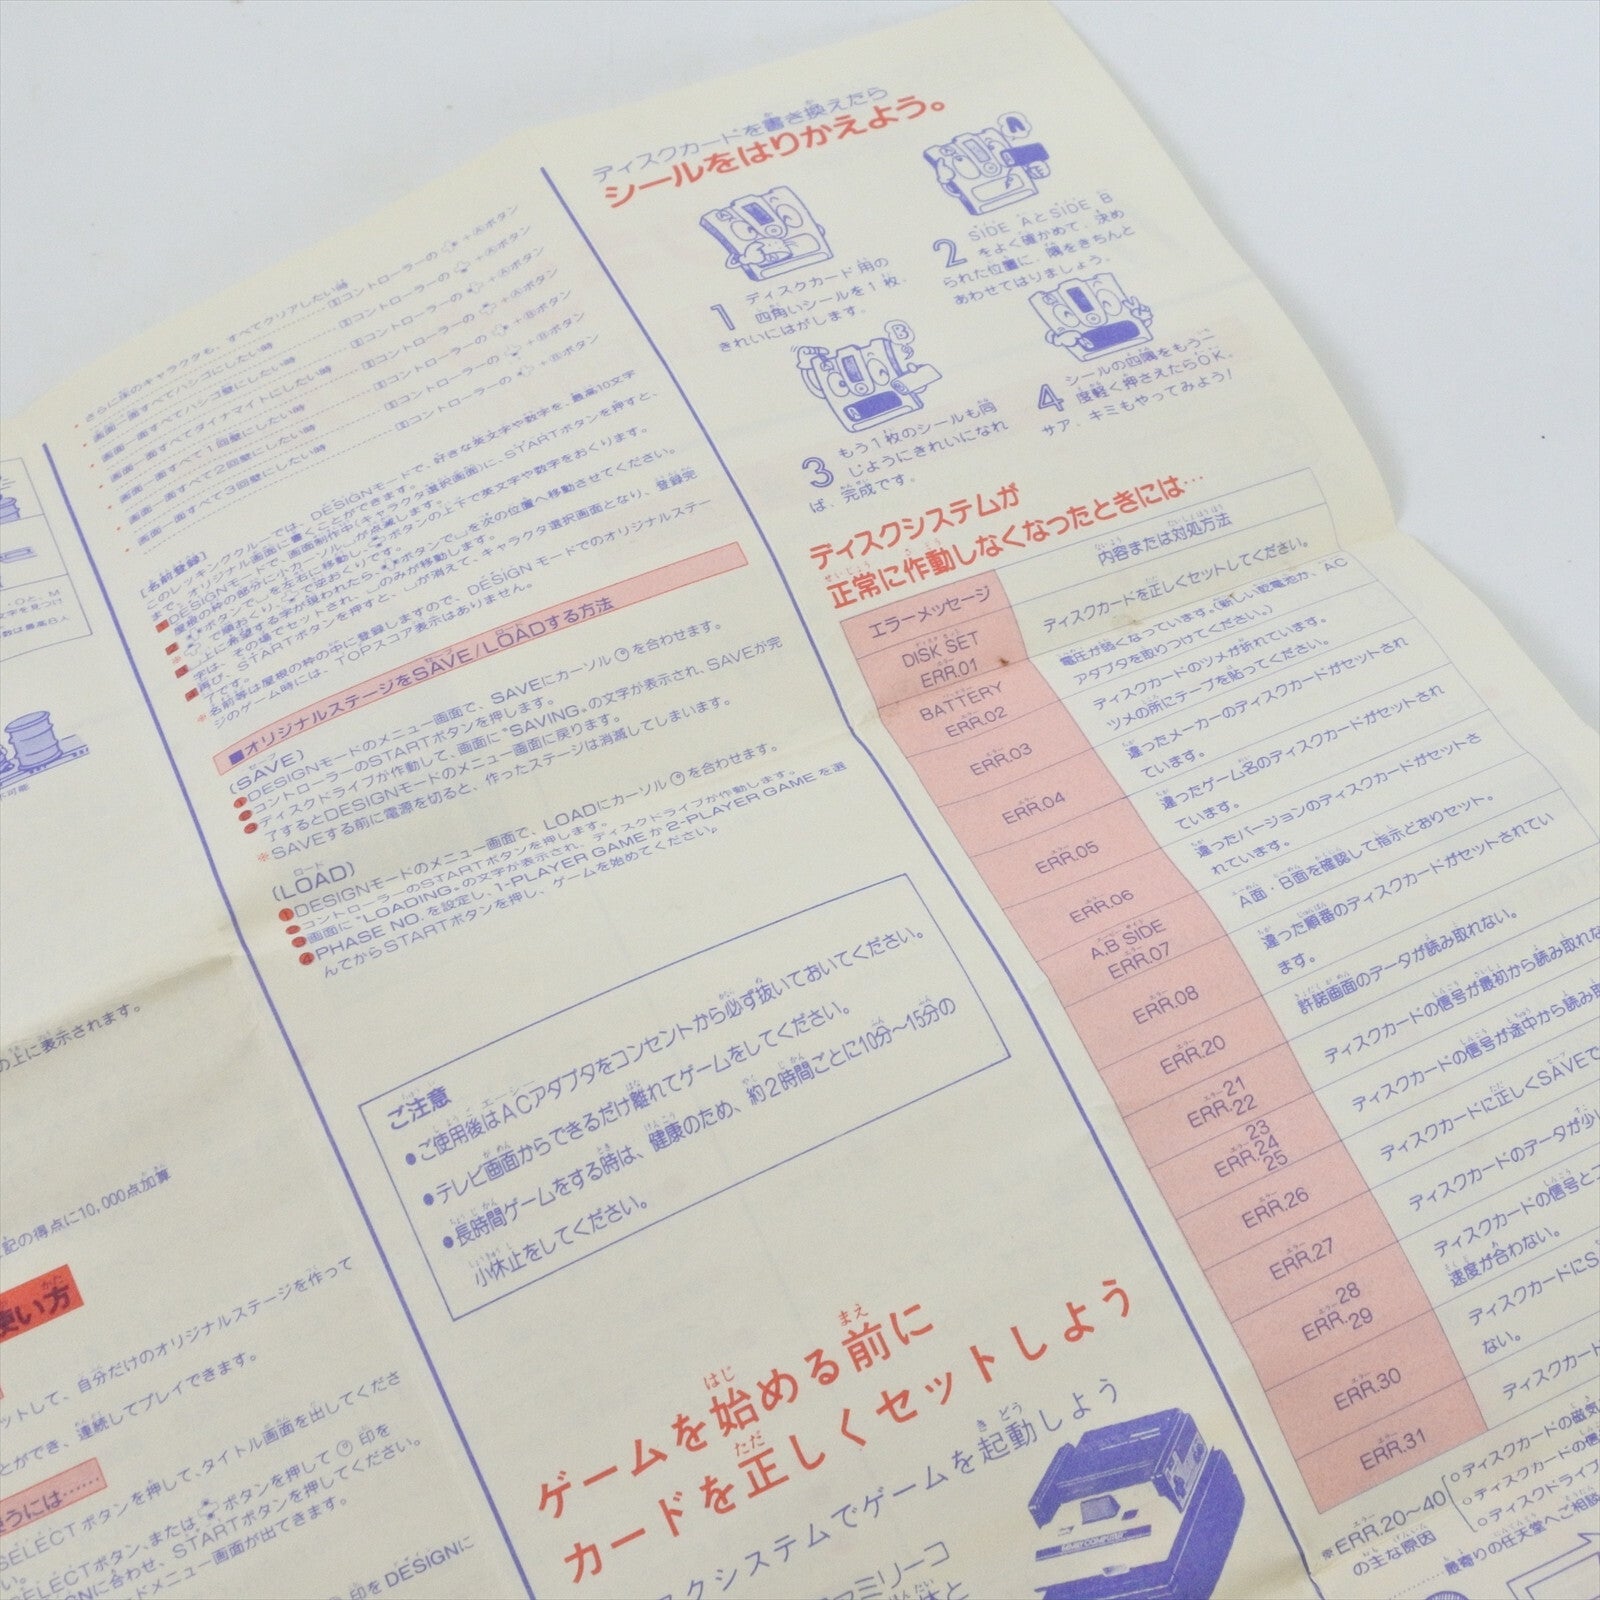 さらに床のキャラクタも、すべてクリアしたい時 ②コントローラーの +Ⓐボタン
画面一面すべてハシゴにしたい時 ②コントローラーの +Ⓐボタン
画面一面すべてハシゴ壁にしたい時 ②コントローラーの +Ⓐボタン
画面一面すべてダイナマイトにしたい時 ②コントローラーの +Ⓐボタン
画面一面すべて1回壁にしたい時 ②コントローラーの +Ⓑボタン
画面一面すべて2回壁にしたい時 ②コントローラーの +Ⓑボタン
画面一面すべて3回壁にしたい時 ②コントローラーの +Ⓑボタン
[名前登録]
このレッキングクルーでは、DESIGNモードで、好きな英文字や数字を、最高10文字
まで、オリジナル画面に書くことができます。
■オリジナルステージをSAVE/LOADする方法
(SAVE)
❶DESIGNモードのメニュー画面で、SAVEにカーソルを合わせます。
❷コントローラーのSTARTボタンを押します。
❸ディスクドライブが作動して、画面に"SAVING"の文字が表示され、SAVEが完
了するとDESIGNモードのメニュー画面に戻ります。
※SAVEする前に電源を切ると、作ったステージは消滅してしまいます。
(LOAD)
❶DESIGNモードのメニュー画面で、LOADにカーソルを合わせます。
❷コントローラーのSTARTボタンを押します。
❸画面に"LOADING"の文字が表示され、ディスクドライブが作動します。
❹PHASE NO.を設定し、1-PLAYER GAMEか2-PLAYER GAMEを選
んでからSTARTボタンを押し、ゲームを始めてください。
ご注意
●ご使用後はACアダプタをコンセントから必ず抜いておいてください。
●テレビ画面からできるだけ離れてゲームをしてください。
●長時間ゲームをする時は、健康のため、約2時間ごとに10分〜15分の
小休止をしてください。
ゲームを始める前に
カードを正しくセットしよう
スクシステムでゲームを起動しよう
ディスクカードを書き換えたら
シールをはりかえよう。
1 ディスクカード用の
四角いシールを1枚、
きれいにはがします。
2 SIDE AとSIDE B
をよく確かめて、決め
られた位置に、隅をきちんと
あわせてはりましょう。
3 もう1枚のシールも同
じようにきれいになれ
ば、完成です。
4 シールの四隅をもう一
度軽く押さえたらOK。
サア、キミもやってみよう!
ディスクシステムが
正常に作動しなくなったときには…
エラーメッセージ 内容または対処方法
DISK SET
ERR.01 ディスクカードを正しくセットしてください。
BATTERY
ERR.02 電圧が弱くなっています。(新しい乾電池か、AC
アダプタを取りつけてください。)
ERR.03 ディスクカードのツメが折れています。
ツメの所にテープを貼ってください。
ERR.04 違ったメーカーのディスクカードがセットされ
ています。
ERR.05 違ったゲーム名のディスクカードがセットされ
ています。
ERR.06 違ったバージョンのディスクカードがセットさ
れています。
A.B SIDE
ERR.07 A面・B面を確認して指示どおりセット。
ERR.08 違った順番のディスクカードがセットされてい
ます。
ERR.20 許諾画面のデータが読み取れない。
ERR.21
22 ディスクカードの信号が最初から読み取れな
ERR.23
24
25 ディスクカードの信号が途中から読み取
ERR.26 ディスクカードに正しくSAVEで
ERR.27 ディスクカードのデータが少し
ERR.28
29 ディスクカードの信号と
速度が合わない。
ERR.30 ディスクカードにS
ない。
ERR.31 ディスクカード
※ERR.20〜40
の主な原因
○ディスクカードの磁気
○ディスクカードの信
○ディスクドライブ
最寄りの任天堂へご相談
の上に表示されます。
記の得点に10,000点加算
使い方
ットして、自分だけのオリジナルステージを作って
とができ、連続してプレイできます。
うには……
SELECTボタンを押して、タイトル画面を出してくださ
い。
SELECTボタン、または ボタンを押して 印を
GNに合わせ、STARTボタンを押してください。
ードメニュー画面が出てきます。
印をDESIGNに